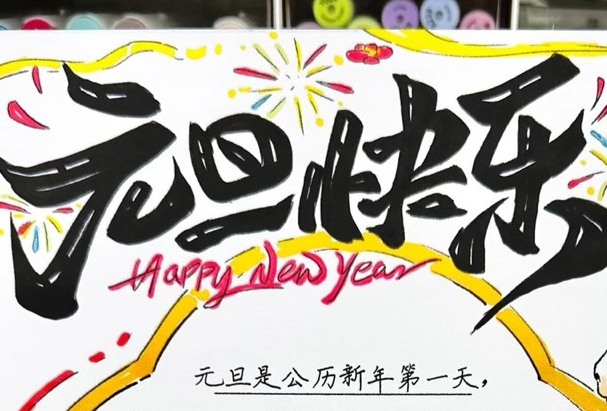 元旦快乐
Happy New Year
元旦是公历新年第一天，